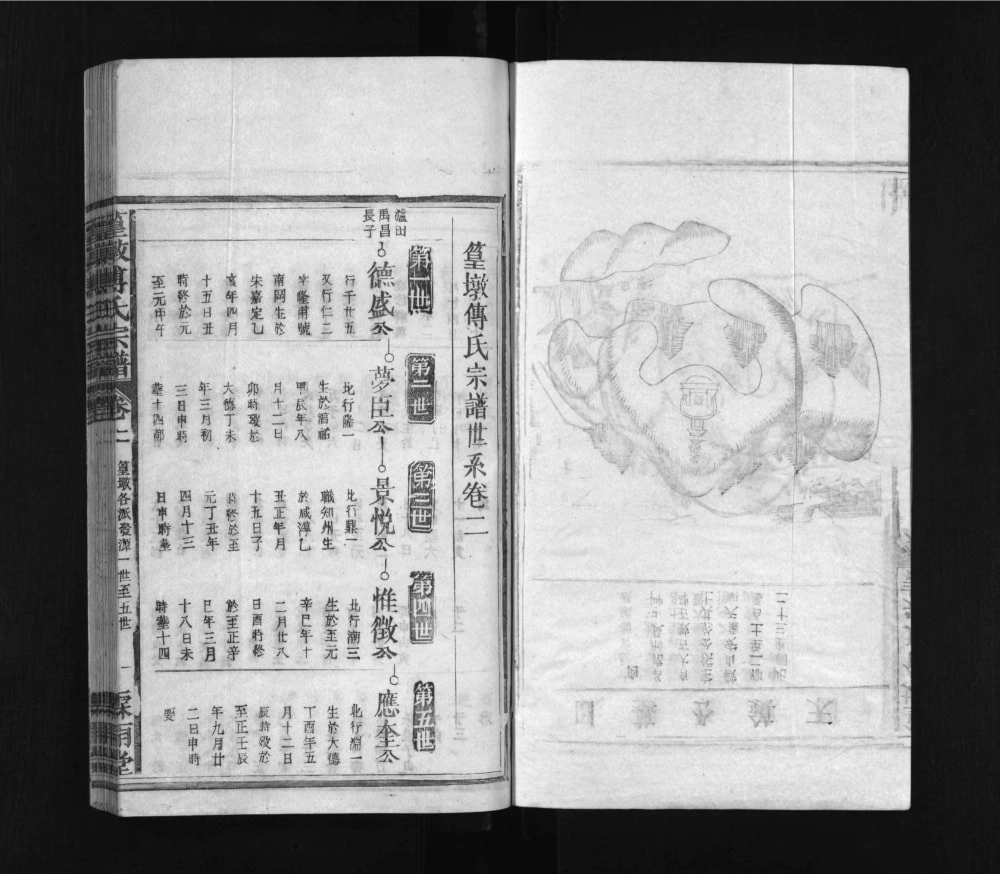 篁墩傅氏宗譜世系卷二
第一世
第二世
第三世
第四世
第五世
爐田
禹昌
長子
德盛公
夢臣公
景悅公
惟徵公
應奎公
行千廿五
又行仁二
字隆甫號
南岡生於
宋嘉定乙
亥年四月
十五日丑
時終於元
至元甲午
圮行隆一
生於淯祐
甲辰年八
月十二日
卯時歿於
大德丁未
年三月初
三日申時
塟十四都
圮行鼎一
職知州生
於咸淳乙
丑正年月
十五日子
時終於至
元丁丑年
四月十三
日申時塟
圮行潮三
生於至元
辛巳年十
二月廿八
日酉時終
於至正辛
巳年三月
十八日未
時塟十四
圮行淵一
生於大德
丁酉年五
月十二日
辰時歿於
至正壬辰
年九月廿
二日申時
塟
篁墩傅氏宗譜
卷二
篁墩各派發源一世至五世
一
霖雨堂